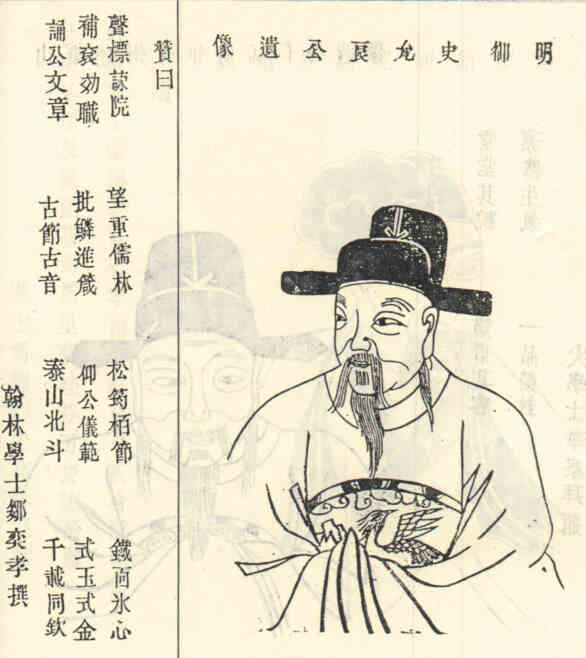 明御史允良公遺像
贊曰
聲標諫院 望重儒林 松筠栢節 鐵面氷心
補袞効職 批鱗進箴 仰公儀範 式玉式金
誦公文章 古節古音 泰山北斗 千載同欽
翰林學士鄒奕孝撰